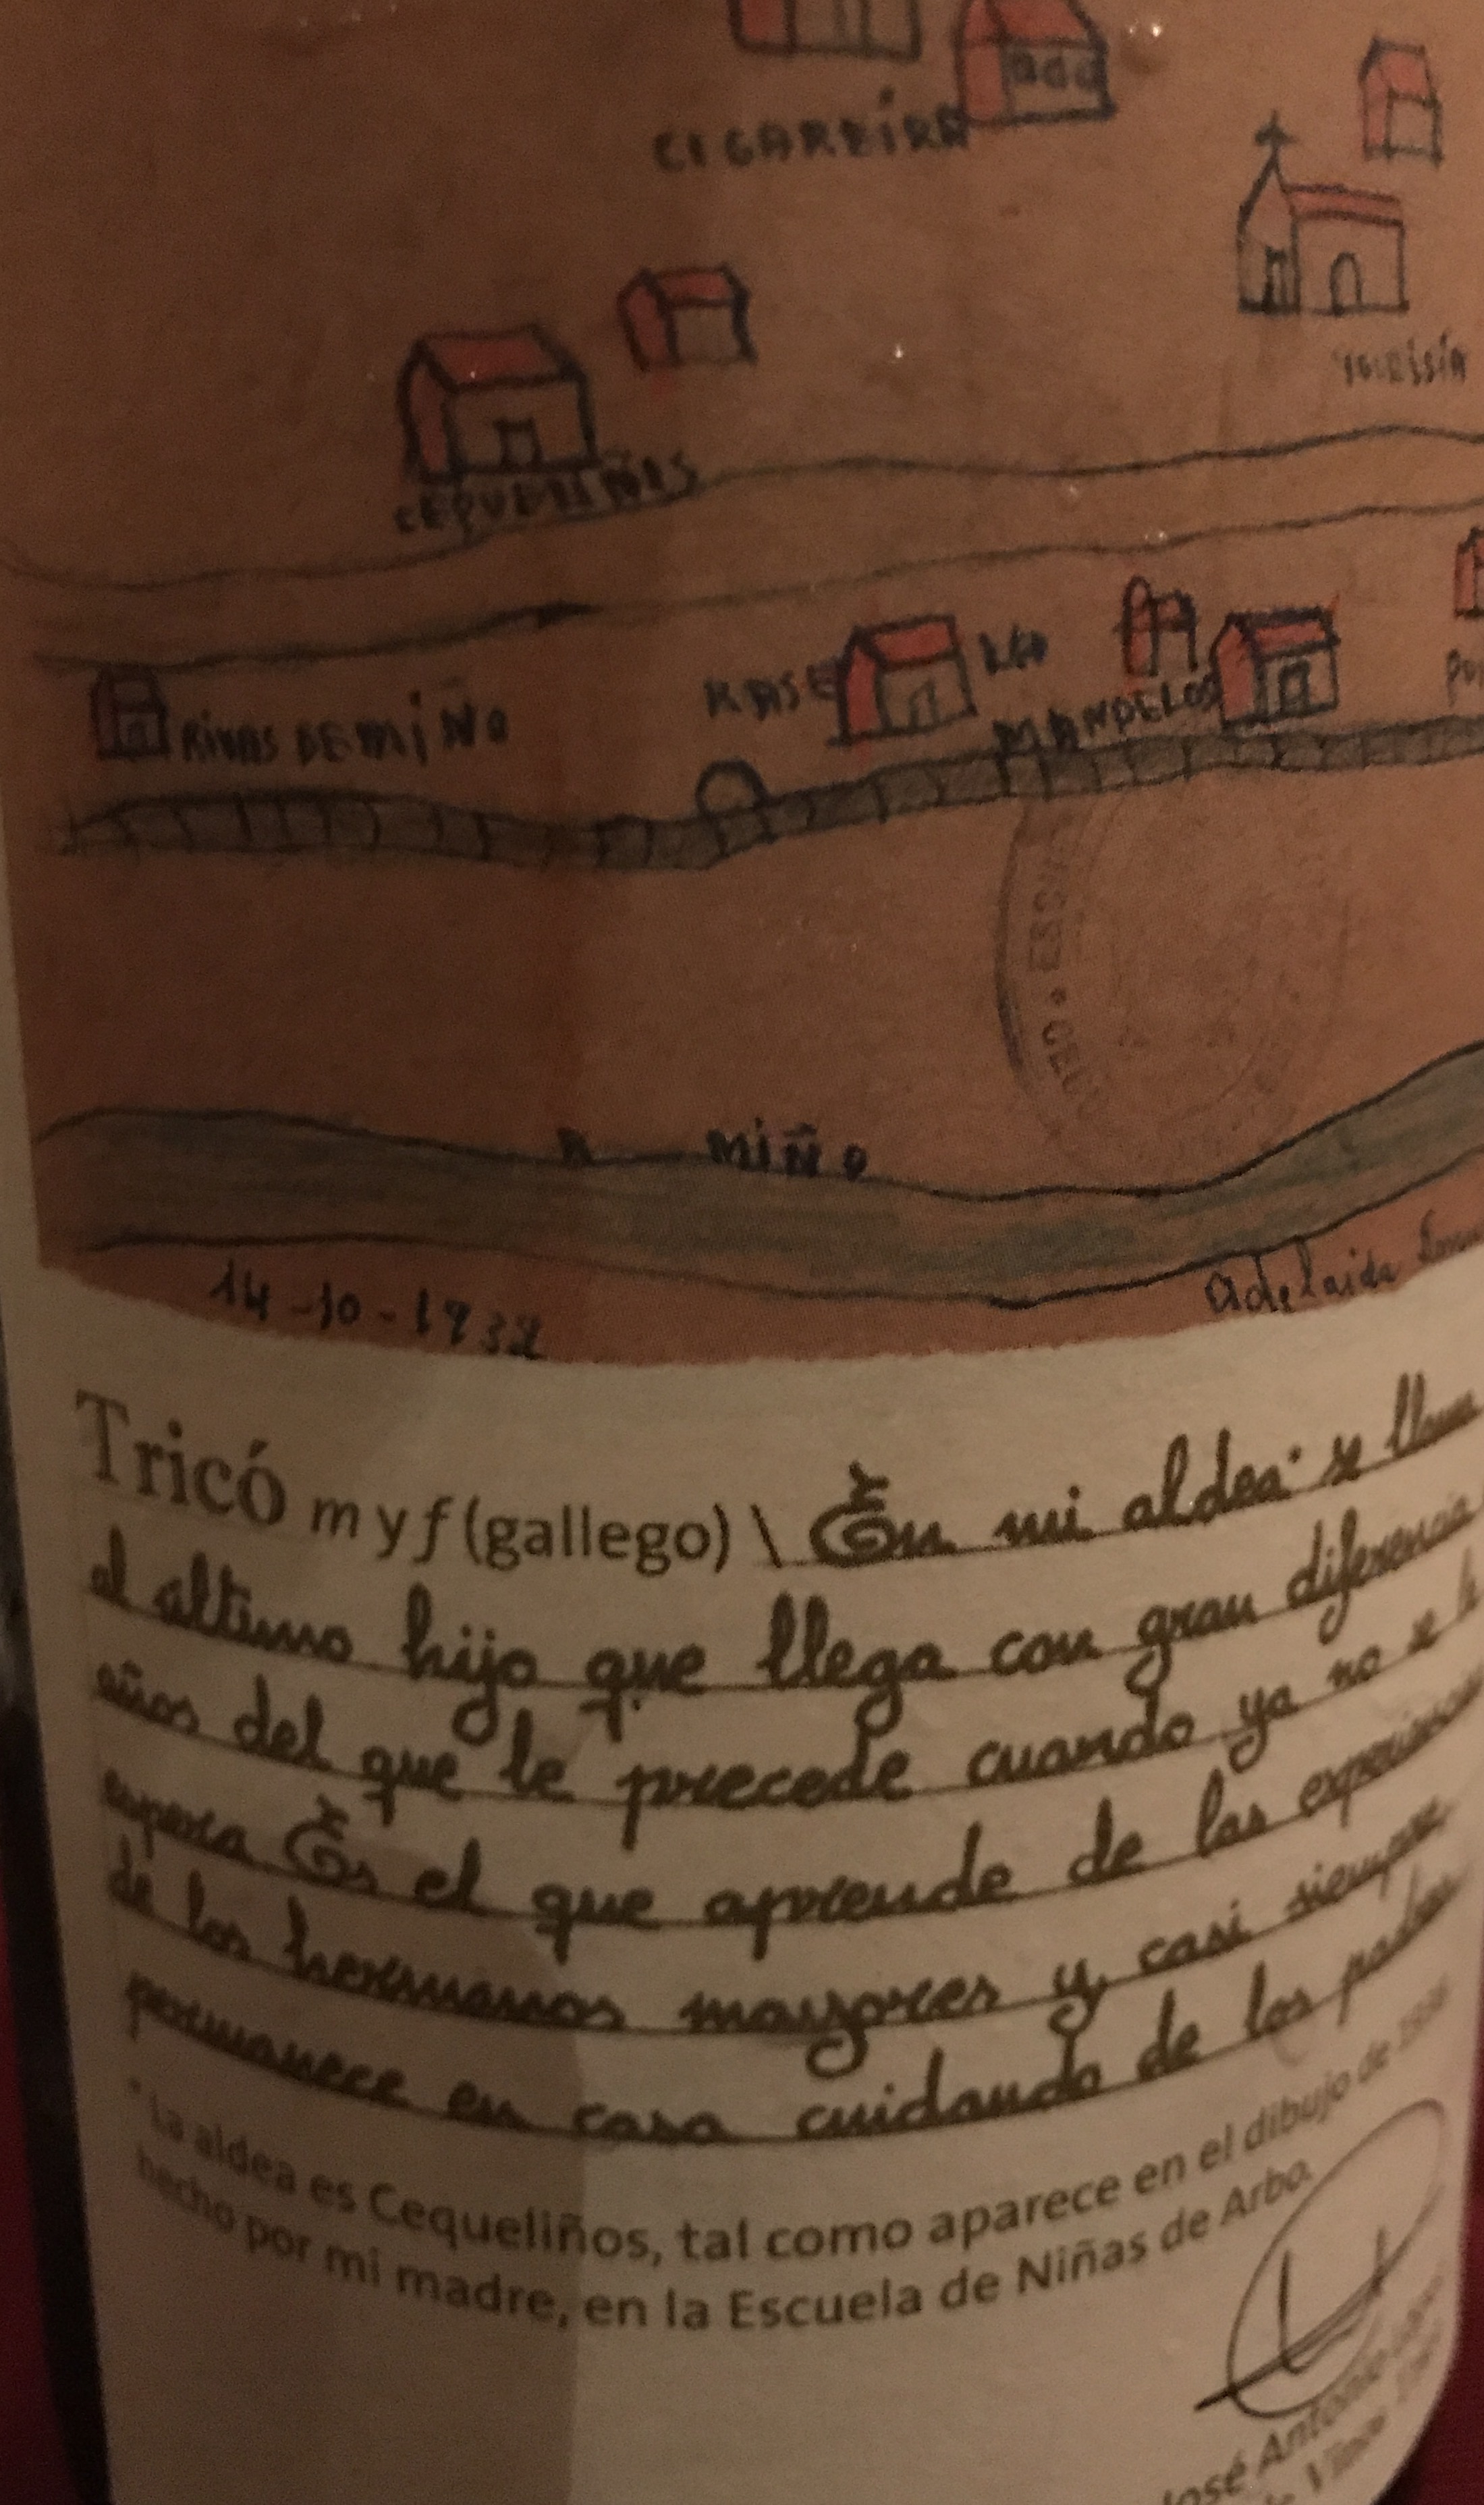 CIGAREIRA
CEQUELIÑOS
RIVAS DE MIÑO
MANDELOS
R MIÑO
14-10-1932
Adelaida
Tricó m y f (gallego) \ En mi aldea* se llama
al último hijo que llega con gran diferencia
años del que le precede cuando ya no se
espera Es el que aprende de las experiencias
de los hermanos mayores y casi siempre
permanece en casa cuidando de los padres
* La aldea es Cequeliños, tal como aparece en el dibujo de
hecho por mi madre, en la Escuela de Niñas de Arbo.
José Antonio